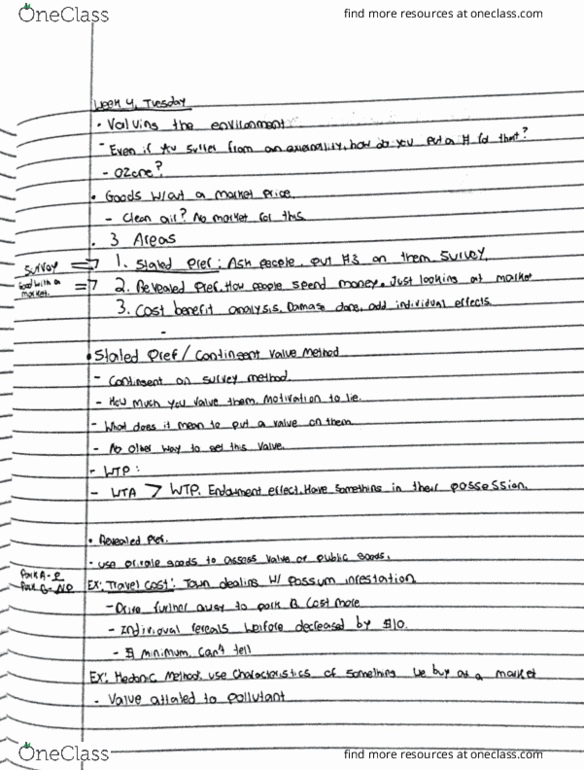 OneClass
find more resources at oneclass.com
Week 4, Tuesday
• Valuing the environment
- Even if you suffer from an externality, how do you put a # for that?
- Ozone?
• Goods w/out a market price.
- Clean air? No market for this
• 3 Areas
Survey => 1. Stated Pref: Ask people, put #s on them survey.
Good with a market. => 2. Revealed Pref. How people spend money. Just looking at market
3. Cost benefit analysis. Damage done, add individual effects.
-
• Stated Pref / Contingent Value Method
- Contingent on survey method.
- How much you value them. Motivation to lie.
- What does it mean to put a value on them
- No other way to get this value.
- WTP:
- WTA > WTP. Endowment effect. Have something in their possession.
• Revealed Pref.
- use private goods to assess value of public goods.
Park A - P
Park B - NO
Ex: Travel Cost: Town dealing w/ possum infestation
- Drive further away to park B. Cost more
- Individual reveals welfare decreased by $10.
- $ minimum, can't tell
Ex: Hedonic Method: use characteristics of something we buy at a market
- Value attatched to pollutant
OneClass
find more resources at oneclass.com